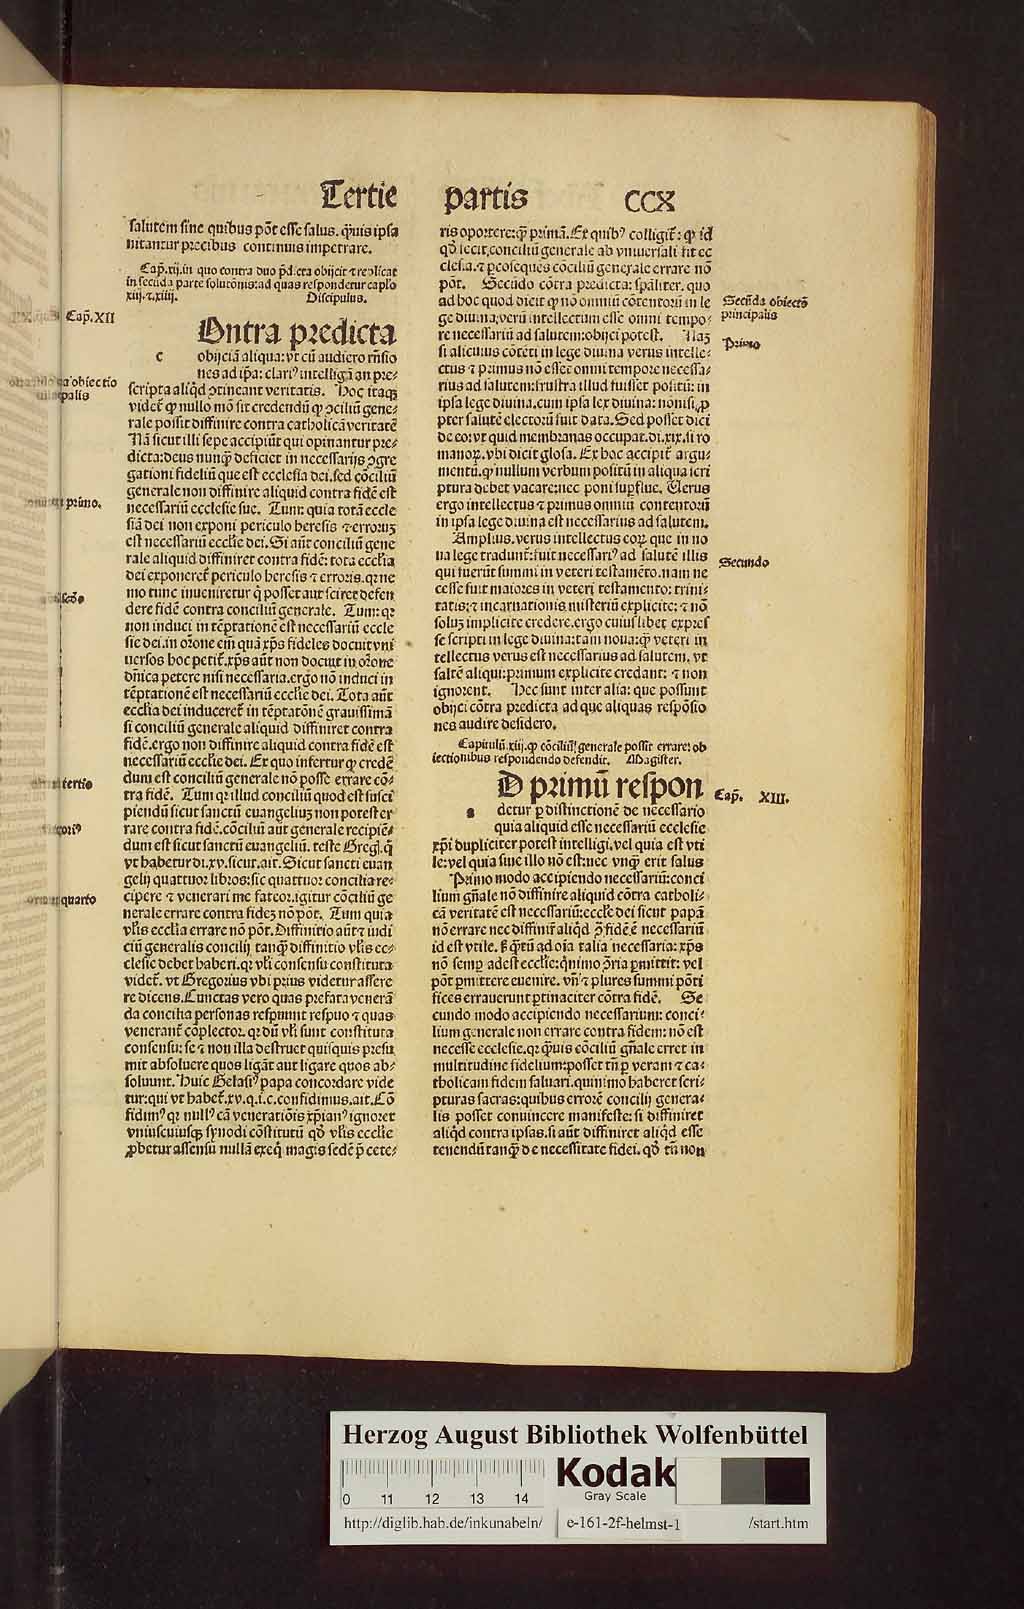 Tertie partis CCX
salutem sine quibus põt esse salus. q̃uis ipsa
nitantur precibus continuis impetrare.
Cap̃. xij. in quo contra duo p̃dicta obijcit ⁊ replicat
in secũda parte solutonis: ad quas respondetur capl'o
xiij. ⁊. xiiij. Discipulus.
Cap̃. XII
Ontra predicta
c obijciã aliqua: vt cũ audiero rñsio
nes ad ip̃a: clariꝰ intelligã an pre-
scripta aliq̃d ꝯtineant veritatis. Hoc itaqꝫ
videt̃ ꝙ nullo mõ sit credendũ ꝙ ꝯciliũ gene-
rale possit diffinire contra catholicã veritatẽ
Nã sicut illi sepe accipiũt qui opinantur pre-
dicta: deus nunq̃ deficiet in necessarijs ꝯgre
gationi fideliũ que est ecclesia dei. sed cõciliũ
generale non diffinire aliquid contra fidẽ est
necessariũ ecclesie sue. Tum: quia totã eccle
siã dei non exponi periculo heresis ⁊ erroruꝫ
est necessariũ eccl'ie dei. Si aũt conciliũ gene
rale aliquid diffiniret contra fidẽ: tota eccl'ia
dei exponeret̃ periculo heresis ⁊ erroris. qꝛ ne
mo tunc inueniretur q̃ posset aut sciret defen
dere fidẽ contra conciliũ generale. Tum: qꝛ
non induci in tẽptationẽ est necessariũ eccle
sie dei. in orõne em̃ quã xp̃s fideles docuit vni
uersos hoc petit̃. xp̃s aũt non docuit in orõne
dñica petere nisi necessaria. ergo nõ induci in
tẽptationẽ est necessariũ eccl'ie dei. Tota aũt
eccl'ia dei induceret̃ in tẽptatõnẽ grauissimã
si conciliũ generale aliquid diffiniret contra
fidẽ. ergo non diffinire aliquid contra fidẽ est
necessariũ eccl'ie dei. Ex quo infertur ꝙ credẽ
dum est conciliũ generale nõ posse errare cõ-
tra fidẽ. Tum qꝛ illud conciliũ quod est susci
piendũ sicut sanctũ euangeliuꝫ non potest er
rare contra fidẽ. cõciliũ aũt generale recipiẽ-
dum est sicut sanctũ euangeliũ. teste Greg[. q̃
vt habetur di. xv. sicut. ait. Sicut sancti euan
gelij quattuor libros: sic quattuor concilia re-
cipere ⁊ venerari me fateor. igitur cõciliũ ge
nerale errare contra fideꝫ nõ põt. Tum quia
vl'is eccl'ia errare nõ põt. Diffinitio aũt ⁊ iudi
ciũ generalis concilij tanq̃ diffinitio vl'is ec-
clesie debet haberi. qꝛ vl'i consensu constituta
videt̃. vt Gregorius vbi prius videtur assere
re dicens. Cunctas vero quas prefata venerã
da concilia personas respuunt respuo ⁊ quas
venerant̃ cõplector. qꝛ dũ vl'i sunt constituta
consensu: se ⁊ non illa destruet quisquis presu
mit absoluere quos ligãt aut ligare quos ab-
soluunt. Huic Gelasiꝰ papa concordare vide
tur: qui vt habet̃. xv. q. i. c. confidimus. ait. Cõ
fidimꝰ qꝛ nullꝰ cã venerationis xp̃ianꝰ ignoret
vniuscuiusqꝫ synodi cõstitutũ qđ vl'is eccl'ie
ꝓbetur assensu nullã exeq̃ magis sedẽ p̃ cete-
ris oportere: q̃ꝫ primã. Ex quibꝰ colligit̃: ꝙ id
qđ fecit. conciliũ generale ab vniuersali fit ec
clesia. ⁊ ꝑ cõseques cõciliũ generale errare nõ
põt. Secũdo cõtra predicta: sp̃aliter. quo
ad hoc quod dicit̃ ꝙ nõ omniũ cõtentorũ in le
ge diuina: verũ intellectum esse omni tempo-
re necessariũ ad salutem: obijci potest. Naꝫ
si alicuius cõtẽti in lege diuina verus intelle-
ctus ⁊ primus nõ esset omni tempore necessa-
rius ad salutem: frustra illud fuisset positũ: in
ipsa lege diuina. cum ipsa lex diuina: nonisi ꝓ
pter salutẽ electorũ fuit data. Sed posset dici
de eo: vt quid membranas occupat. di. xix. si ro
manoꝝ. vbi dicit glosa. Ex hoc accipit̃ argu-
mentũ. ꝙ nullum verbum positũ in aliqua scri
ptura debet vacare: nec poni suꝑflue. Verus
ergo intellectus ⁊ primus omniũ contentorũ
in ipsa lege diuina est necessarius ad salutem.
Amplius. verus intellectus eoꝝ que in no
ua lege tradunt̃: fuit necessariꝰ ad salutẽ illis
qui fuerũt summi in veteri testamẽto. nam ne
cesse fuit maiores in veteri testamento: trini-
tatis: ⁊ incarnationis misteriũ explicite: ⁊ nõ
soluꝫ implicite credere. ergo cuiuslibet expres
se scripti in lege diuina: tam noua: q̃ꝫ veteri in
tellectus verus est necessarius ad salutem. vt
saltẽ aliqui: primum explicite credant: ⁊ non
ignorent. Hec sunt inter alia: que possunt
obijci cõtra predicta ad que aliquas respõsio
nes audire desidero.
Capitulũ. xiij. ꝙ cõciliũ generale possit errare: ob
iectionibus respondendo defendit. Magister.
D primũ respon
a detur ꝑ distinctionẽ de necessario
quia aliquid esse necessariũ ecclesie
xp̃i dupliciter potest intelligi. vel quia est vti
le: vel quia sine illo nõ est: nec vnq̃ erit salus
Primo modo accipiendo necessariũ: conci
lium gñale nõ diffinire aliquid cõtra catholi-
cã veritatẽ est necessariũ: eccl'ie dei sicut papã
nõ errare nec diffinir̃ aliq̃d ꝯ̃ fidẽ ẽ necessariũ
id est vtile. sꝫ q̃tũ ad oĩa talia necessaria: xp̃s
nõ semꝑ adest eccl'ie: q̃nimo ꝯ̃ria ꝑmittit: vel
põt ꝑmittere euenire. vñ ⁊ plures summi põti
fices errauerunt ꝑtinaciter cõtra fidẽ. Se
cundo modo accipiendo necessarium: conci-
lium generale non errare contra fidem: nõ est
necesse ecclesie. qꝛ q̃uis cõciliũ gñale erret in
multitudine fidelium: posset tñ ꝑ veram ⁊ ca-
tholicam fidem saluari. quinimo haberet scri-
pturas sacras: quibus errorẽ concilij genera-
lis posset conuincere manifeste: si diffiniret
aliq̃d contra ipsas. si aũt diffiniret aliq̃d esse
tenendũ tanq̃ de necessitate fidei. qđ tñ non
Secũda obiectõ
principalis
Primo
Secundo
Cap̃. XIII.
obiectio
primo.
tertio
quarto
Herzog August Bibliothek Wolfenbüttel
Kodak
Gray Scale
0 11 12 13 14
http://diglib.hab.de/inkunabeln/ e-161-2f-helmst-1 /start.htm